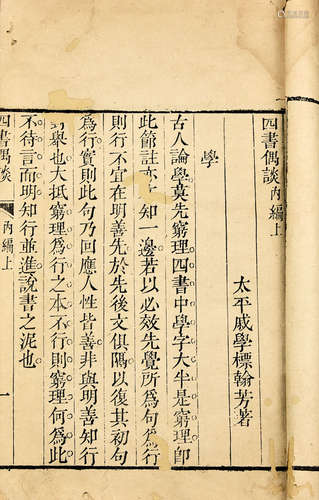 四書偶談內編上
太平戚學標翰芳著
學
古人論學莫先窮理四書中學字大半是窮理即
此節註亦 知一邊若以必效先覺所為句為行
則行不宜在明善先於先後文俱隔以復其初句
為行實則此句乃回應人性皆善非與明善知行
對舉也大抵窮理為行之本不行則窮理何為此
不待言而明知行並進說書之泥也
四書偶談 內編上 一